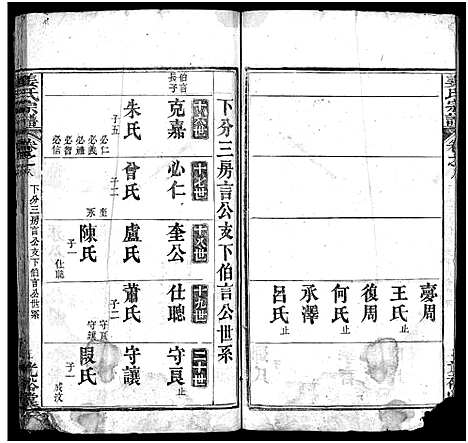 姜氏宗譜
卷之八
夢周
王氏止
復周
何氏止
承澤
呂氏止
下分三房言公支下伯言公世系
十六世
伯言長子
克嘉
朱氏
子五
必仁
必義
必禮
必智
必信
十七世
必仁
曾氏
子二
奎
丞
十八世
奎公
盧氏
陳氏
子一
仕聰
十九世
仕聰
蕭氏
子二
守良
守讓
二十世
守良止
守讓
段氏
子一
成汶
姜氏宗譜
卷之八
下分三房言公支下伯言公世系